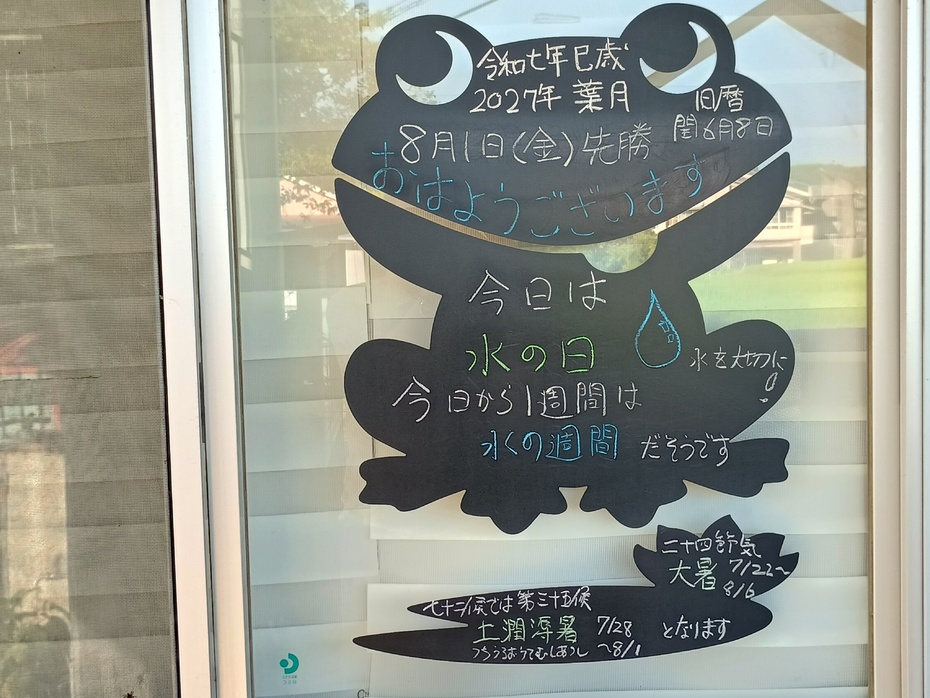 令和七年巳歳
2027年 葉月
旧暦
閏6月8日
8月1日(金)先勝
おはようございます
今日は
水の日
水を大切に
今日から1週間は
水の週間 だそうです
二十四節気
大暑 7/22~
8/6
七十二侯では第三十五侯
土潤溽暑 7/28 となります
つちうるおうてむしあつし ~8/1